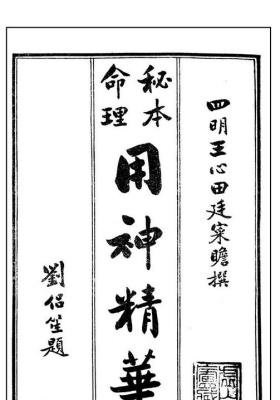 四明王心田廷寀瞻撰
秘本
命理
用神精華
劉侶笙題